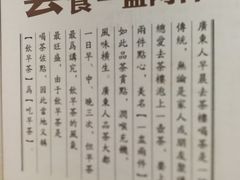 廣東人早晨去茶樓喝茶是一
傳統，無論是家人或朋友聚
總愛去茶樓泡上一壺茶，要上
兩件點心，美名【一盅兩件】
如此品茶賞點，潤喉充
風味橫生。廣東人品茶大都
一日早、中、晚三次，但早茶
最爲講究，飲早茶的風氣
最旺盛，由于飲早茶是
喝茶佐點，因此當地又稱
【飲早茶】爲【吃早茶】。